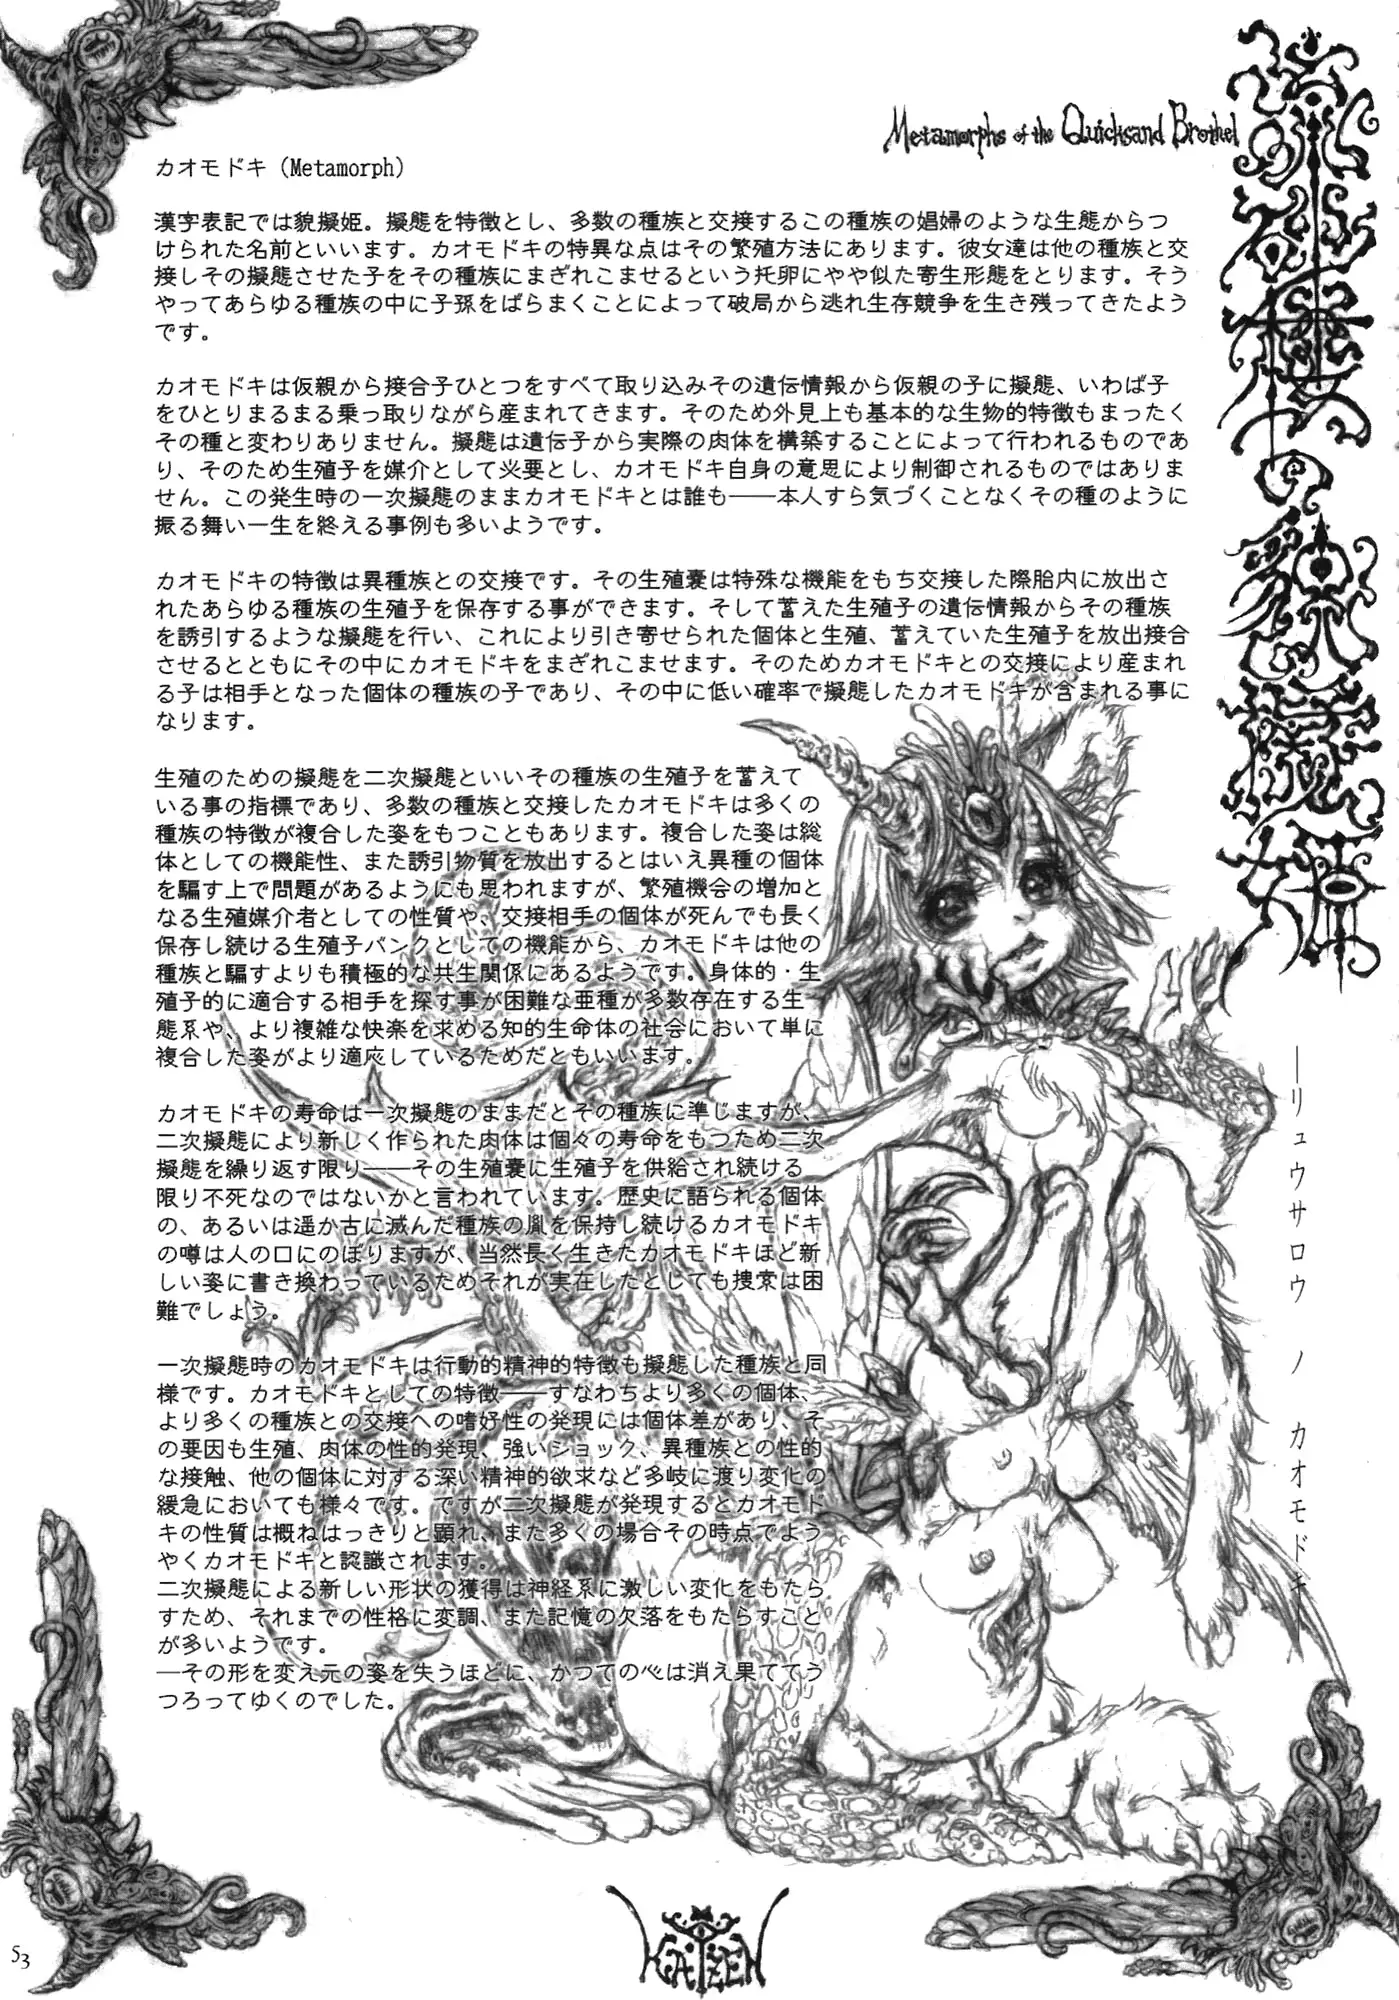 Metamorphs of the Quicksand Brothel
カオモドキ（Metamorph）
漢字表記では貌擬姫。擬態を特徴とし、多数の種族と交接するこの種族の娼婦のような生態からつ
けられた名前といいます。カオモドキの特異な点はその繁殖方法にあります。彼女達は他の種族と交
接しその擬態させた子をその種族にまぎれこませるという托卵にやや似た寄生形態をとります。そう
やってあらゆる種族の中に子孫をばらまくことによって破局から逃れ生存競争を生き残ってきたよう
です。
カオモドキは仮親から接合子ひとつをすべて取り込みその遺伝情報から仮親の子に擬態、いわば子
をひとりまるまる乗っ取りながら産まれてきます。そのため外見上も基本的な生物的特徴もまったく
その種と変わりありません。擬態は遺伝子から実際の肉体を構築することによって行われるものであ
り、そのため生殖子を媒介として必要とし、カオモドキ自身の意思により制御されるものではありま
せん。この発生時の一次擬態のままカオモドキとは誰も――本人すら気づくことなくその種のように
振る舞い一生を終える事例も多いようです。
カオモドキの特徴は異種族との交接です。その生殖嚢は特殊な機能をもち交接した際胎内に放出さ
れたあらゆる種族の生殖子を保存する事ができます。そして蓄えた生殖子の遺伝情報からその種族
を誘引するような擬態を行い、これにより引き寄せられた個体と生殖、蓄えていた生殖子を放出接合
させるとともにその中にカオモドキをまぎれこませます。そのためカオモドキとの交接により産まれ
る子は相手となった個体の種族の子であり、その中に低い確率で擬態したカオモドキが含まれる事に
なります。
生殖のための擬態を二次擬態といいその種族の生殖子を蓄えて
いる事の指標であり、多数の種族と交接したカオモドキは多くの
種族の特徴が複合した姿をもつこともあります。複合した姿は総
体としての機能性、また誘引物質を放出するとはいえ異種の個体
を騙す上で問題があるようにも思われますが、繁殖機会の増加と
なる生殖媒介者としての性質や、交接相手の個体が死んでも長く
保存し続ける生殖子バンクとしての機能から、カオモドキは他の
種族と騙すよりも積極的な共生関係にあるようです。身体的・生
殖子的に適合する相手を探す事が困難な亜種が多数存在する生
態系や、より複雑な快楽を求める知的生命体の社会において単に
複合した姿がより適応しているためだともいいます。
カオモドキの寿命は一次擬態のままだとその種族に準じますが、
二次擬態により新しく作られた肉体は個々の寿命をもつため二次
擬態を繰り返す限り――その生殖嚢に生殖子を供給され続ける
限り不死なのではないかと言われています。歴史に語られる個体
の、あるいは遥か古に滅んだ種族の胤を保持し続けるカオモドキ
の噂は人の口にのぼりますが、当然長く生きたカオモドキほど新
しい姿に書き換わっているためそれが実在したとしても捜索は困
難でしょう。
一次擬態時のカオモドキは行動的精神的特徴も擬態した種族と同
様です。カオモドキとしての特徴――すなわちより多くの個体、
より多くの種族との交接への嗜好性の発現には個体差があり、そ
の要因も生殖、肉体の性的発現、強いショック、異種族との性的
な接触、他の個体に対する深い精神的欲求など多岐に渡り変化の
緩急においても様々です。ですが二次擬態が発現するとカオモド
キの性質は概ねはっきりと顕れ、また多くの場合その時点でよう
やくカオモドキと認識されます。
二次擬態による新しい形状の獲得は神経系に激しい変化をもたら
すため、それまでの性格に変調、また記憶の欠落をもたらすこと
が多いようです。
―その形を変え元の姿を失うほどに、かつての心は消え果ててう
つろってゆくのでした。
―リュウサロウ ノ カオモドキ―
53